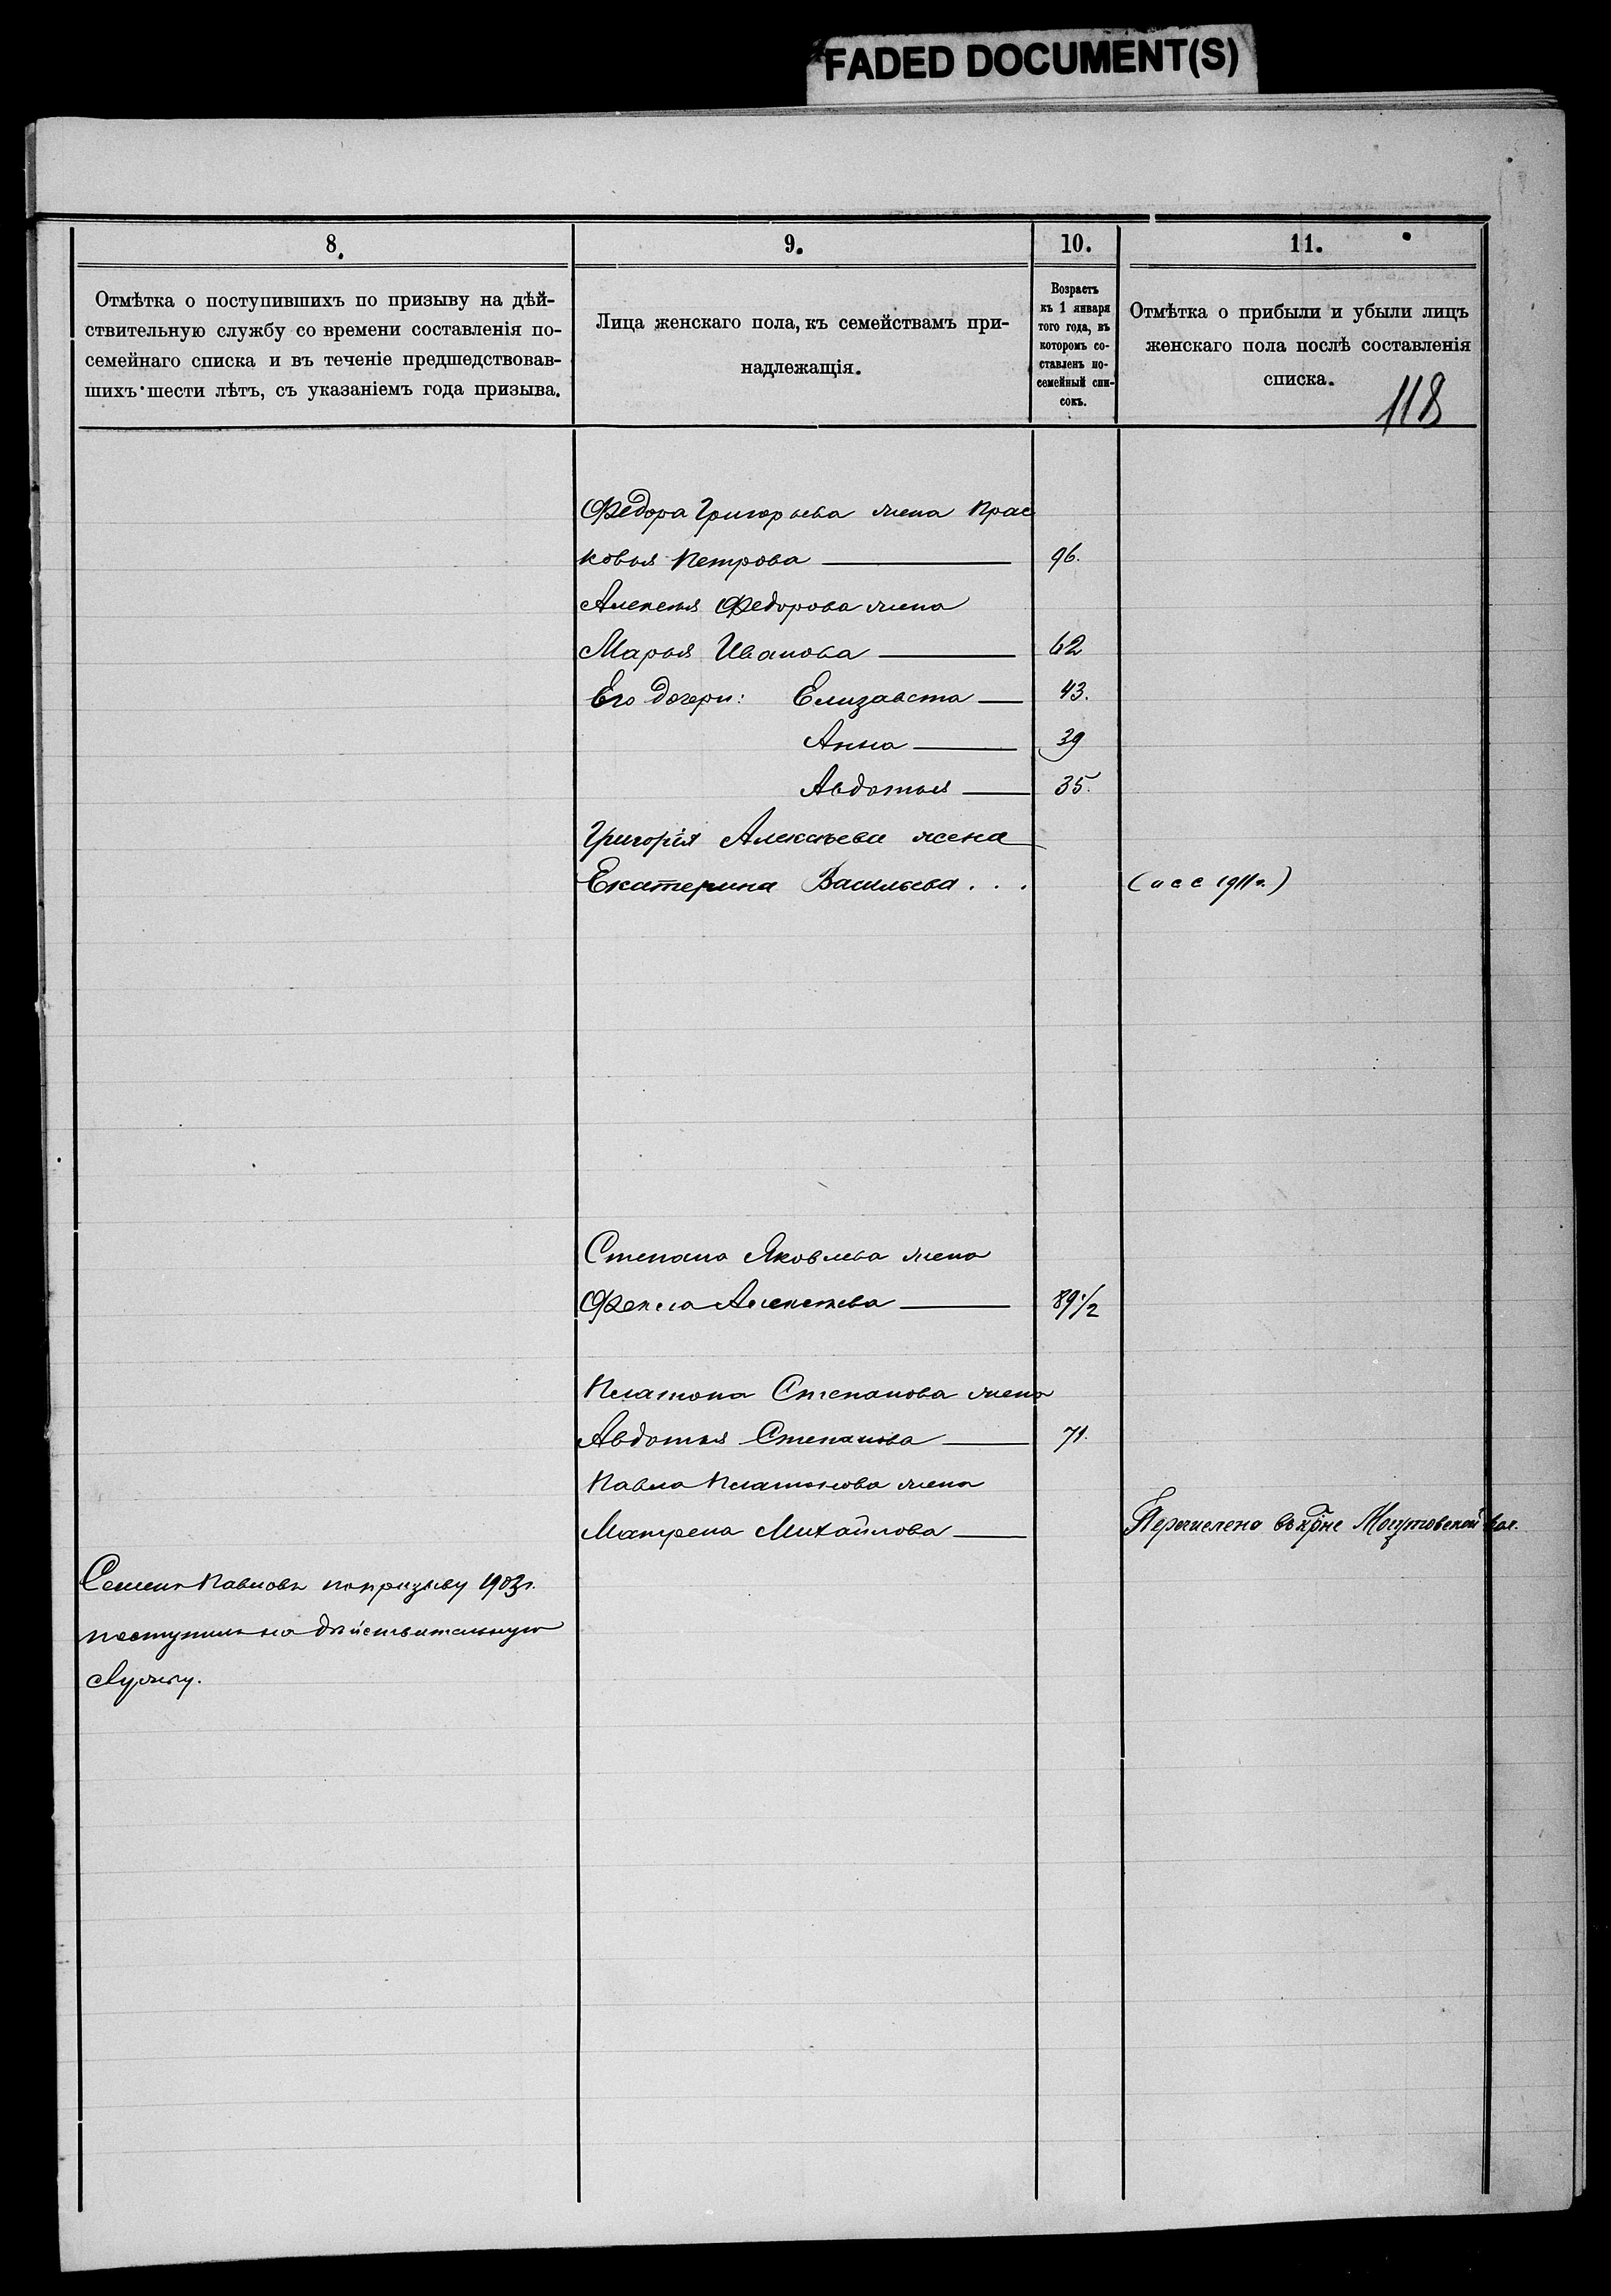 FADED DOCUMENT(S)
8.
9.
10.
11.
Отмѣтка о поступившихъ по призыву на дѣй-
ствительную службу со времени составленія по-
семейнаго списка и въ теченіе предшедствовав-
шихъ шести лѣтъ, съ указаніемъ года призыва.
Лица женскаго пола, къ семействамъ при-
надлежащія.
Возрастъ
къ 1 января
того года, въ
которомъ со-
ставленъ по-
семейный спи-
сокъ.
Отмѣтка о прибыли и убыли лицъ
женскаго пола послѣ составленія
списка.
118
Федора Григорьева жена Прас
ковья Петрова 96.
Алексѣя Федорова жена
Марья Иванова 62
Его дочери: Елизавета 43.
Анна 39
Авдотья 35.
Григорія Алексѣева жена
Екатерина Васильева . . . 1911 г.)
Степана Яковлева жена
Фекла Алексѣева 89 1/2
Платона Степанова жена
Авдотья Степанова 71.
Павла Платонова жена
Матрена Михайлова Перечислена въ Могутовской вол.
Семенъ Павловъ по призыву 1903 г.
поступилъ на дѣйствительную
службу.